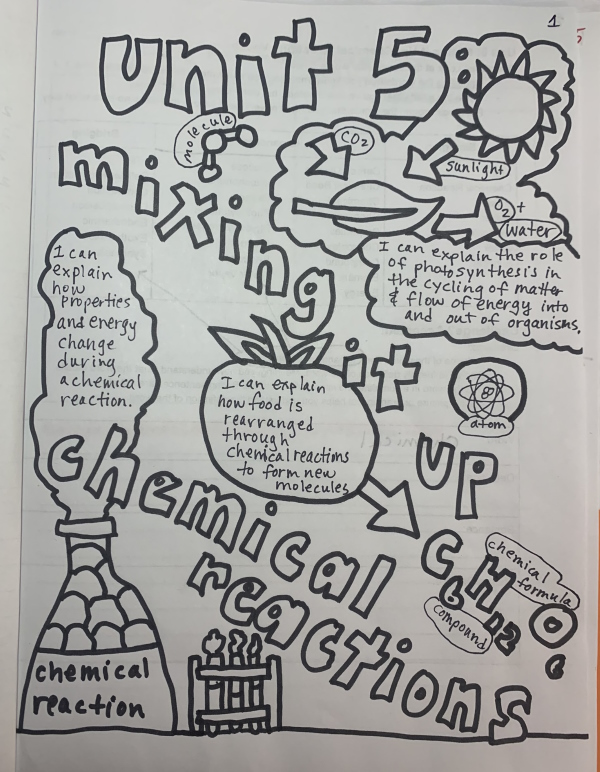 1
unit 5
molecule
CO2
sunlight
O2 +
water
mixing
it
up
I can explain the role
of photosynthesis in
the cycling of matter
& flow of energy into
and out of organisms.
I can
explain
how
properties
and energy
change
during
a chemical
reaction.
I can explain
how food is
rearranged
through
chemical reactions
to form new
molecules
atom
chemical
reactions
C6H12O6
chemical
formula
compound
chemical
reaction